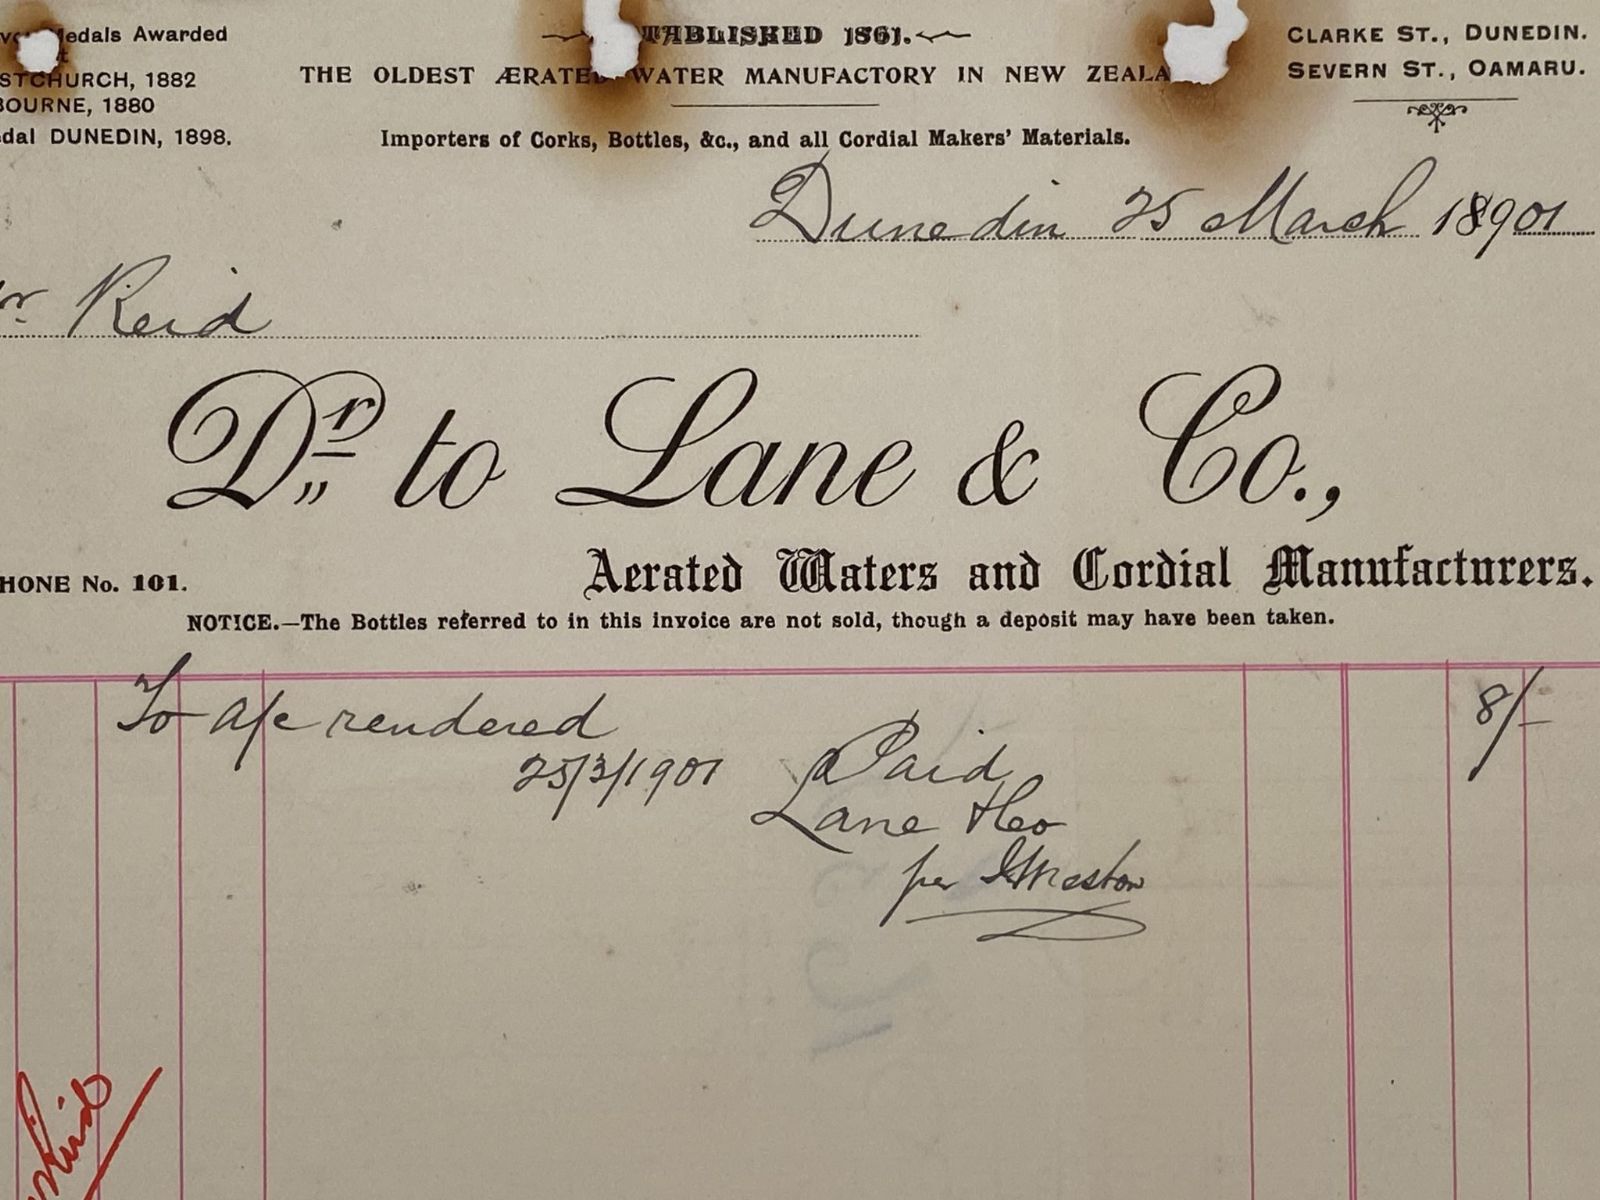 Medals Awarded
STCHURCH, 1882
BOURNE, 1880
dal DUNEDIN, 1898.
TABLISHED 1861.
THE OLDEST ÆRATED WATER MANUFACTORY IN NEW ZEALA
Importers of Corks, Bottles, &c., and all Cordial Makers' Materials.
CLARKE ST., DUNEDIN.
SEVERN ST., OAMARU.
Dunedin 25 March 18901
Mr Reid
Dr to Lane & Co.,
Aerated Waters and Cordial Manufacturers.
HONE No. 101.
NOTICE.—The Bottles referred to in this invoice are not sold, though a deposit may have been taken.
To a/c rendered 8/-
25/3/1901 Paid
Lane & Co
per
Reid